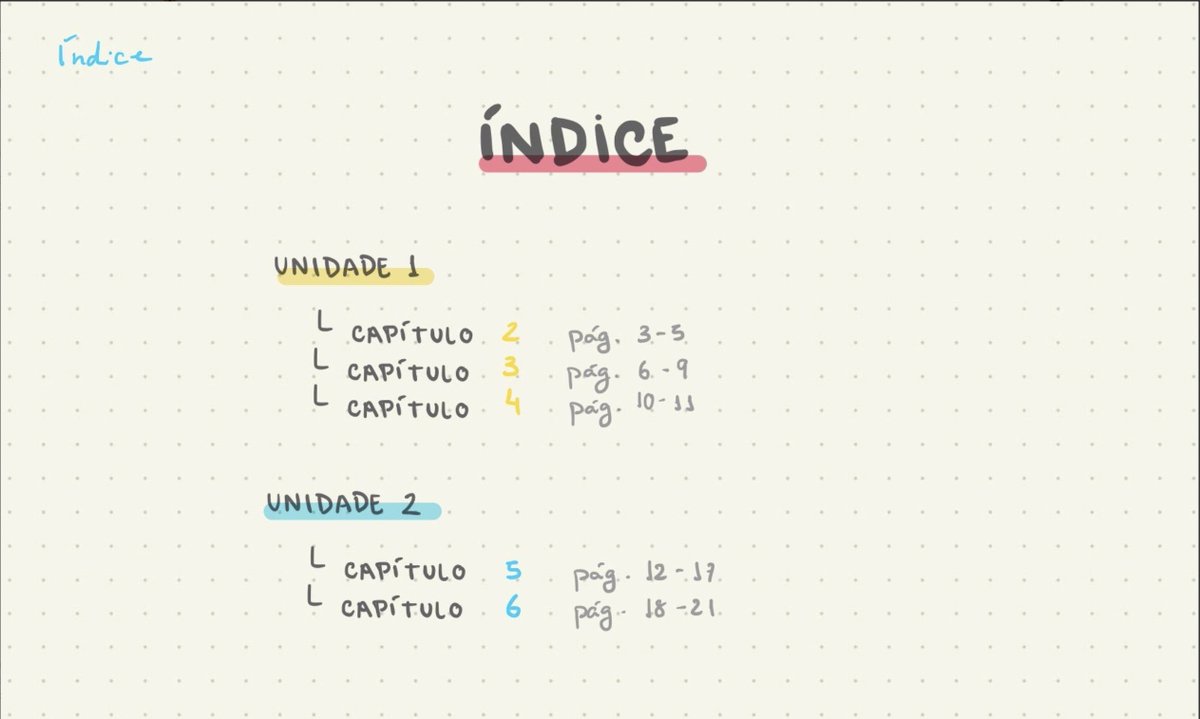 Índice
ÍNDICE
UNIDADE 1
CAPÍTULO 2 pág. 3-5
CAPÍTULO 3 pág. 6-9
CAPÍTULO 4 pág. 10-11
UNIDADE 2
CAPÍTULO 5 pág. 12-17
CAPÍTULO 6 pág. 18-21